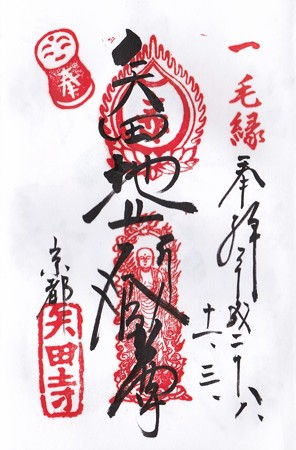 一毛縁
奉拝 平成二十八
十一、三、
矢田地蔵尊
京都
矢田寺